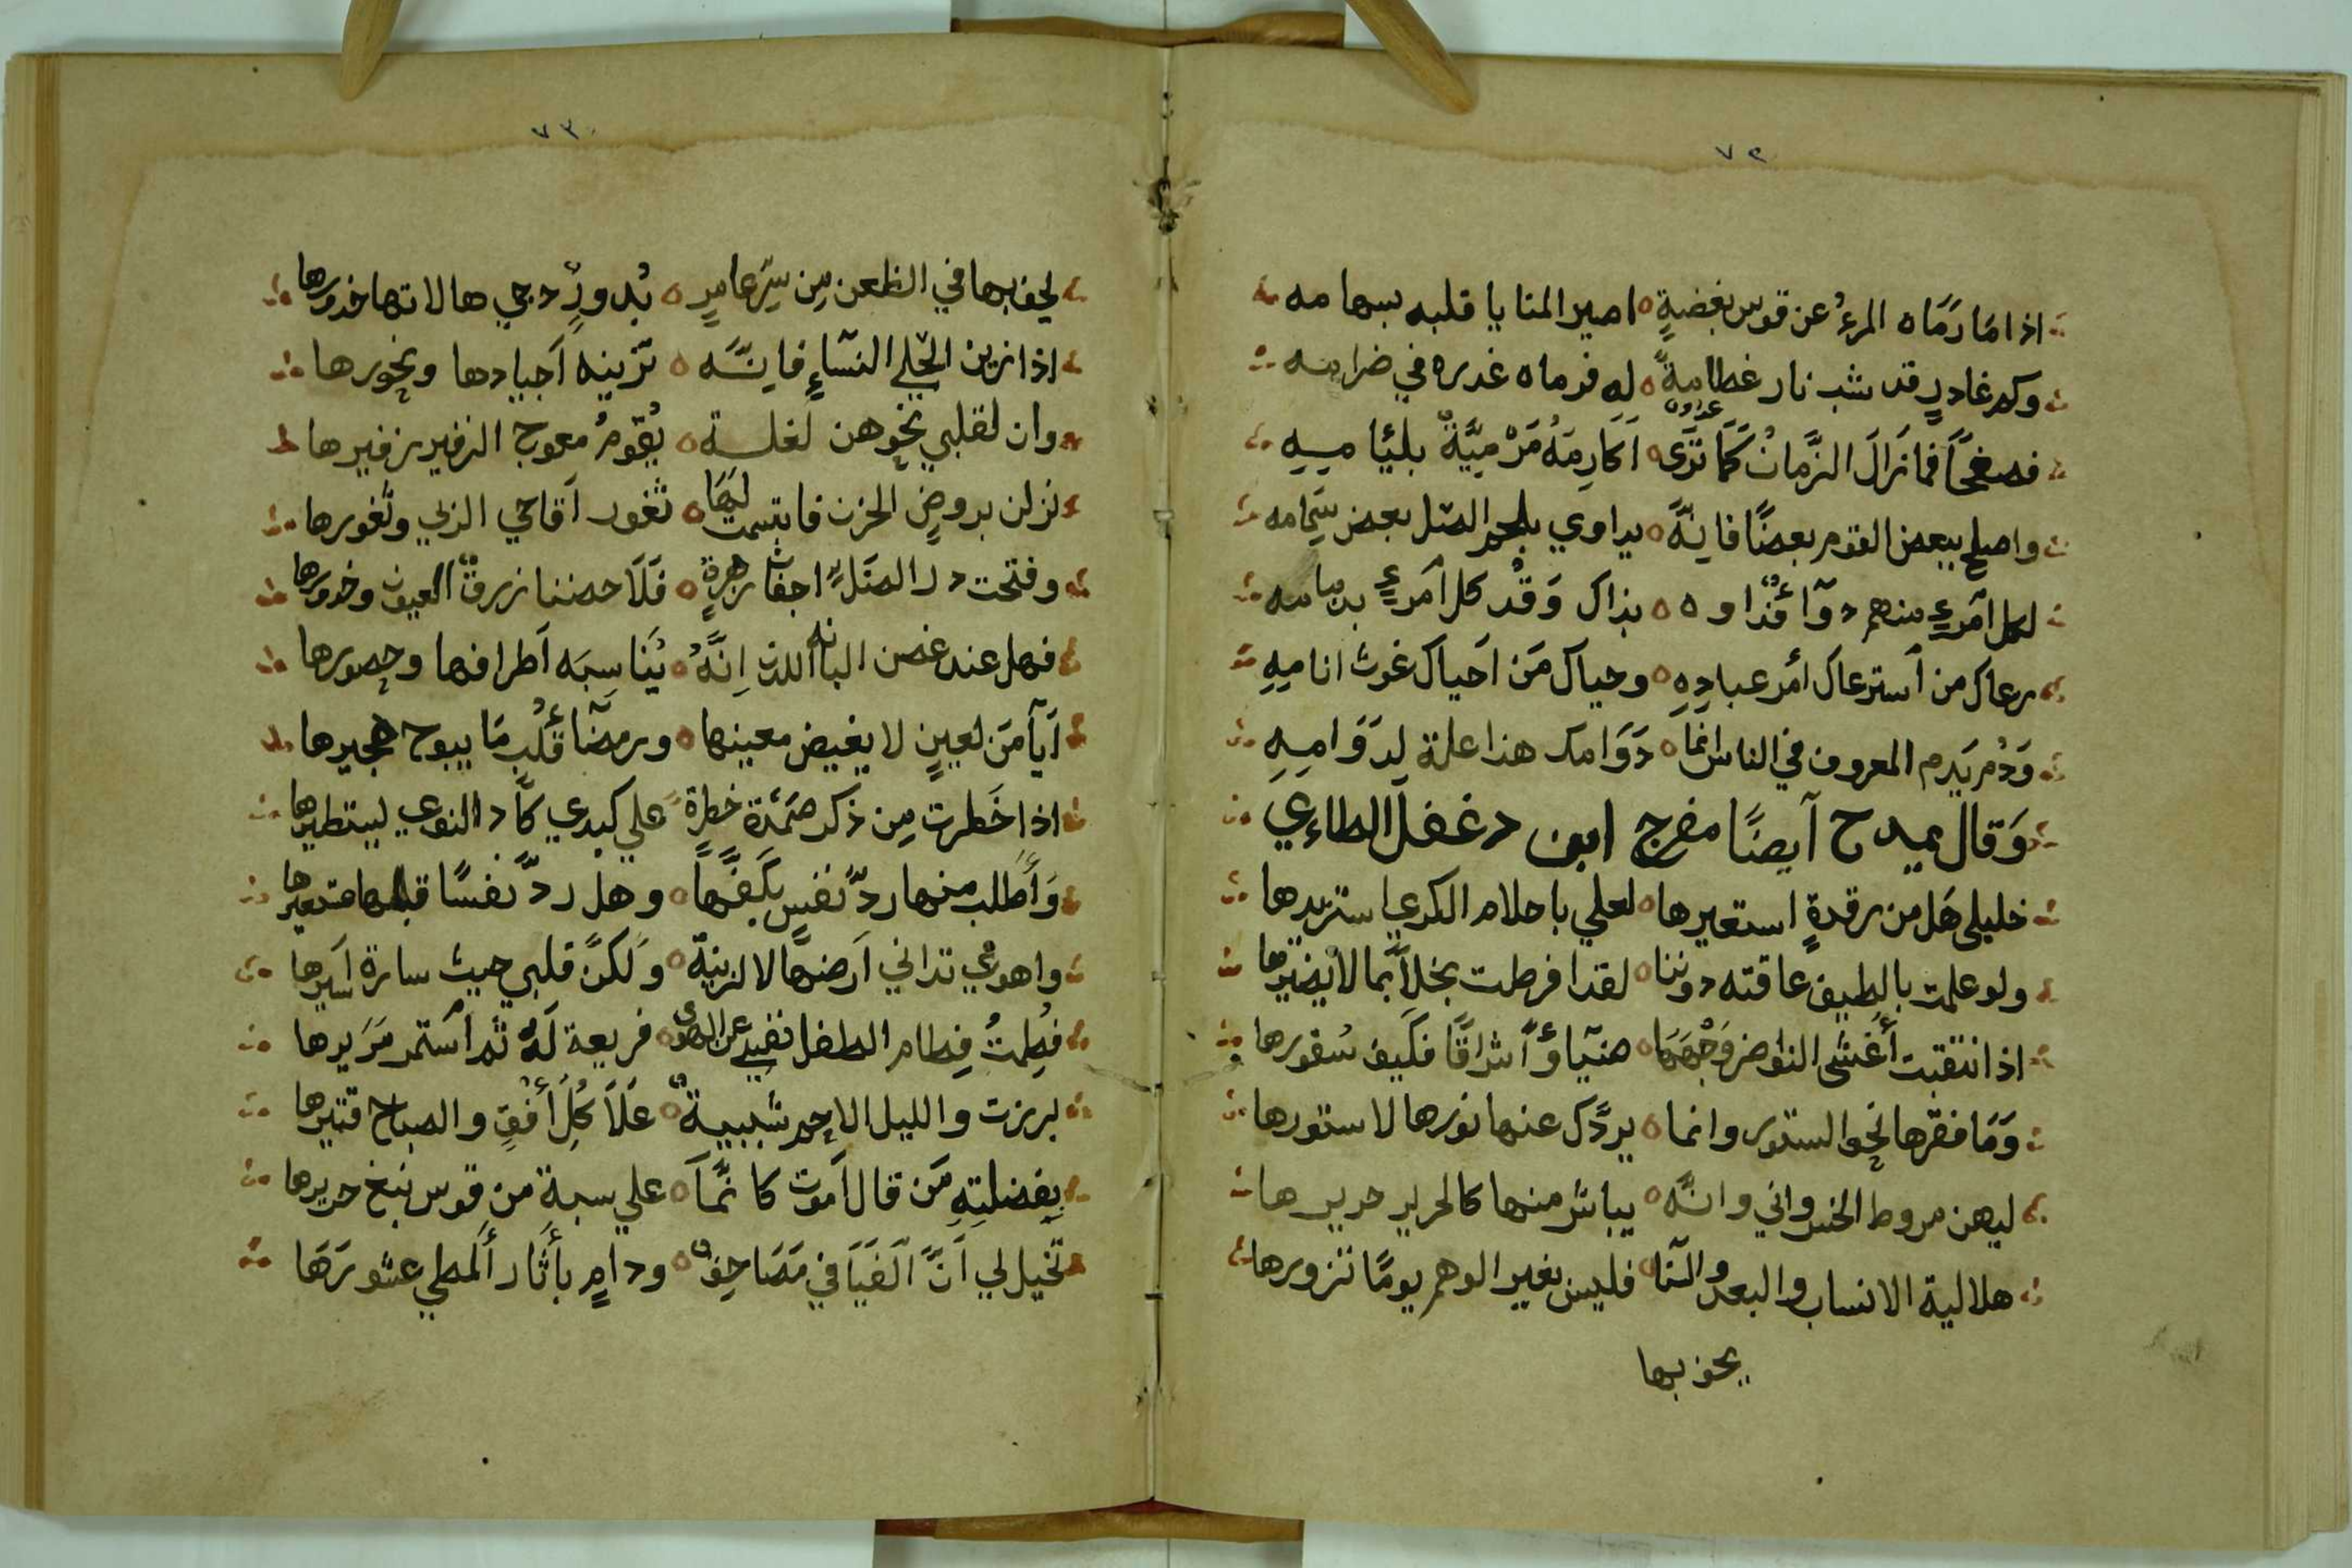 ٧٢
اذا مَا رَمَاه المرءُ عن قوس بغضةٍ ٥ اصير المنايا قلبه بسهامه
وكم غادرٍ قد شب نار غطامةً ٥ له فرماه غدره في ضرامه
عداوه
فصفحًا فما زَالَ الزَّمانُ كَمَا تَرَى ٥ اَكَارِمَهُ مَرْمِيَّةٌ بلئيَامِهِ
واصلح ببعض القوم بعضًا فانهَّ ٥ يداوي بلحم الصل بعض سِمَامه
لكل اَمرءٍ منهم دوآ فَدَاو ٥ ٥ بذاك وَقْد كل اَمرءٍ بدبامه
رعاك من اَسترعاك اَمْر عبادِهِ ٥ وحياك مَن اَحياك غوث انامِهِ
وَدُمْ يَدِم المعروف في الناس انَّما ٥ دَوَامك هذا علة لِدَوَامِهِ
وَقال يمدح اَيضًا مفرج ابن دغفل الطاءي
خليلى هَل من رقدةٍ استعيرها ٥ لعلي باحلام الكرى استزيرها
ولو علمت بالطيف عاقته دوننا ٥ لقد افرطت بخلاً بما لا يضيرها
اذا انتقبت اَغشى النواضر وَجْهَهَا ٥ ضيَآ وَاَشراقًا فكَيف سُفورها
وَمَا فقرها نحو الستور وانما ٥ يردَّك عنها نورها لا ستورها
ليهن مروط الخسرواني وانَّه ٥ يباشر منها كالحرير حريرها
هلالية الانساب والبعد والنَّا ٥ فليس بغير الوهم يومًا تزورها
يحف بها
٧٣
يحف بها في الظعن مِن سِرّ عامرٍ ٥ بُدورٌ دجي هالاتها خدورها
اذا زين الحَلي النسَآءِ فانَّه ٥ تزينه اَجيادها ونحورها
وان لقلبي نحوهن لغلة ٥ يُقوّمُ معوج الزفير زفيرها
نزلن بروضٍ الحزن فابتسمت لَهَا ٥ ثغور اَقاحي الربي وثغورها
وفتحت در الصَلٌ اجفان زهرةٍ ٥ فَلَاحضننا زرق العيون وخدورها
فهل عند غصن البانه اللدن اِنَّهُ ٥ يُنَاسِبَه اَطرافها وحصورها
اَيَآ مَن لعينٍ لا يغيض معينها ٥ ورمضَآ قَلْبٍ مَا يبوح هجيرها
اذا خَطرت مِن ذكر ضَمْرَة خطرة ٥ علي كبدي كَاد النوي يستطيرها
وَاَطلب منها ردَّ نفسٍ بكَفّهَا ٥ وهل ردَّ نفسًا قبلها مستعيرها
واهوي تداني اَرضها لا لزينة ٥ وَلكنَّ قلبي حيث سارة اَسيرها
فُطِمتُ فِطام الطفل نفسي عن الهوى ٥ فريعة لَهُ ثم اَستمر مَرَيرها
بريزت والليل الاحم شبيبةٌ ٥ عَلَا كُلِّ اَفُقٍ والصباح قتيرها
بِفضلتِهِ مَن قال اَموت كانَّمَا ٥ علي سبة من قوس نبغ حريرها
تخيل لي اَنَّ اَلفَيَافي مَصَاحِف ٥ ودامٍ بأثَار اَلمطي عشورَهَا